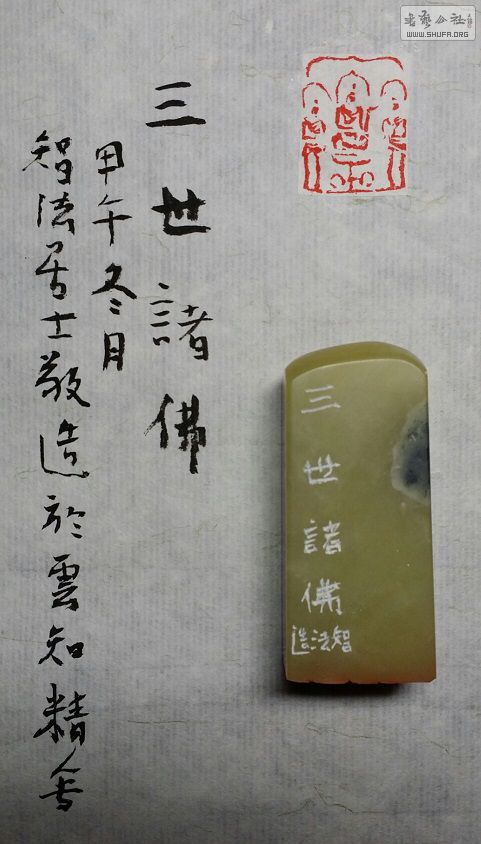 三世諸佛
甲午冬月
智法居士敬造於雲知精舍
三世諸佛
智法造
書藝公社
WWW.SHUFA.ORG